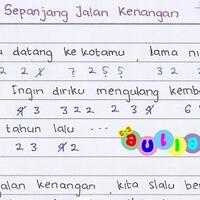 Sepanjang Jalan Kenangan
datang ke kotamu, lama ni
2 2 7 2 5 5 3 2
Ingin diriku mengulang kemb
3 3 2 2 2 3 6
tahun lalu ...
aulia
2 3 2
alan kenangan, kita slalu be